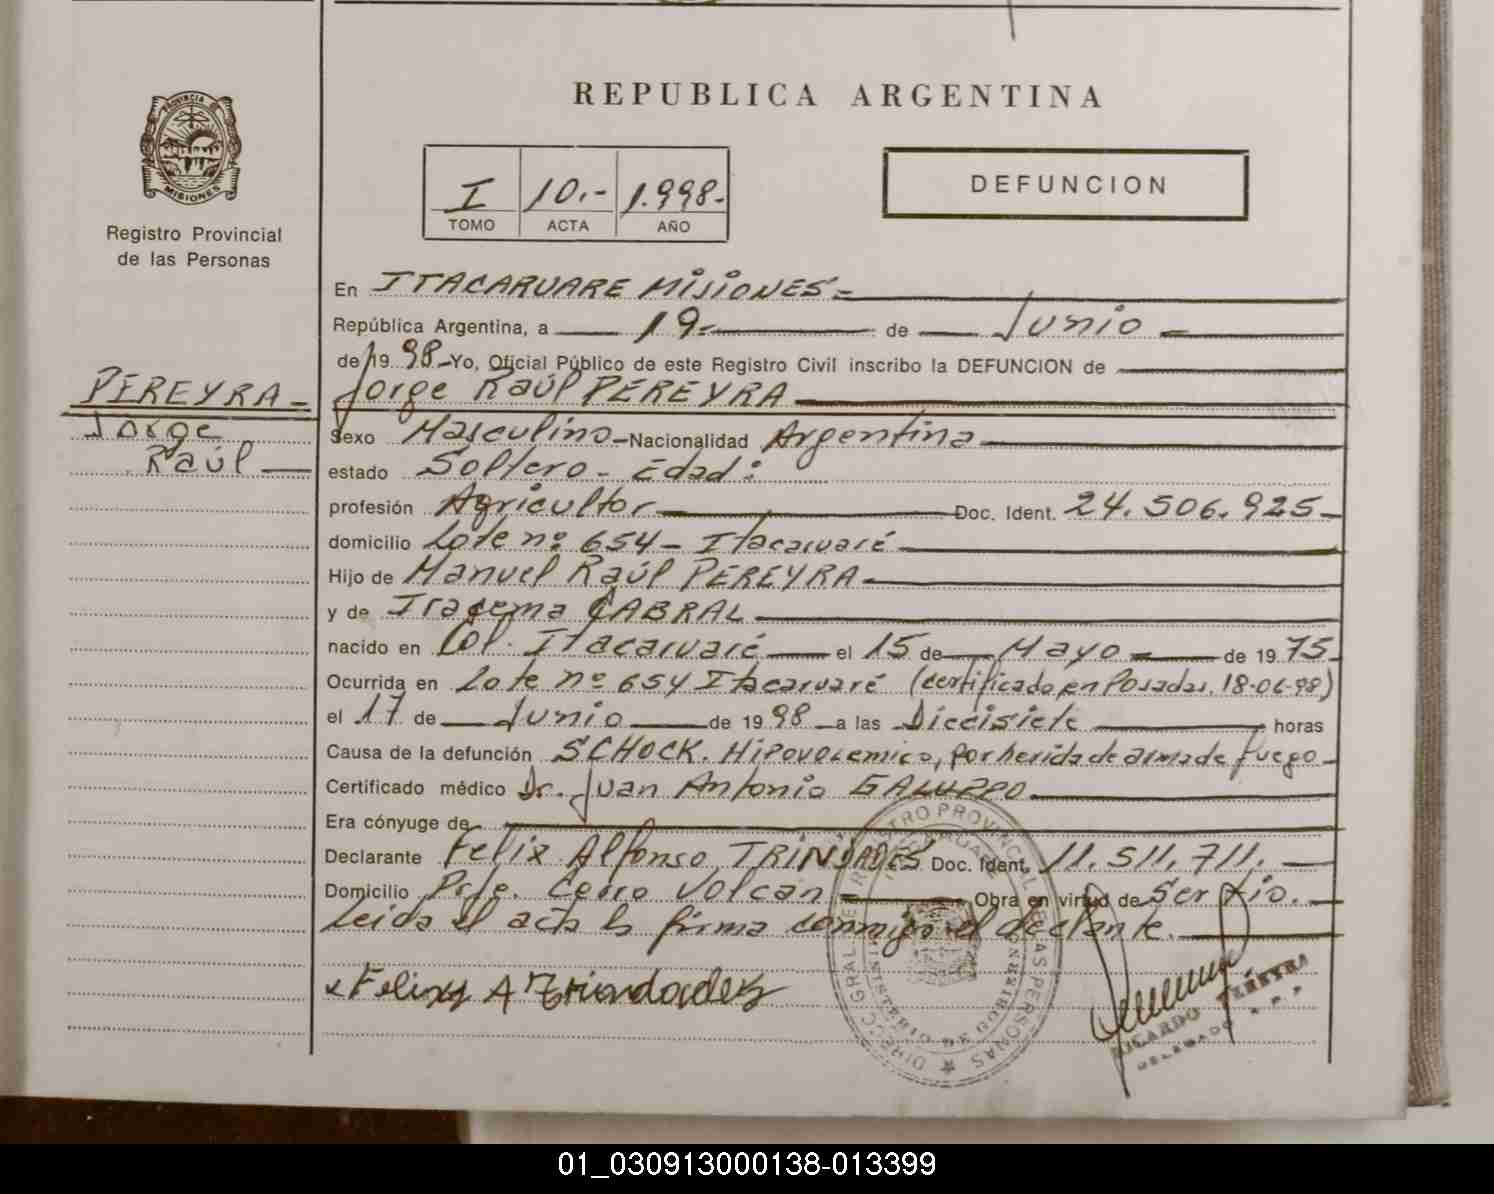 REPUBLICA ARGENTINA
PROVINCIA DE
MISIONES
Registro Provincial
de las Personas
I 10.- 1.998-
TOMO ACTA AÑO
DEFUNCION
En ITACARUARE MISIONES=
República Argentina, a 19.- de Junio
de 19 98 Yo, Oficial Público de este Registro Civil inscribo la DEFUNCION de
PEREYRA
Jorge Raúl PEREYRA
Jorge
Sexo Masculino Nacionalidad Argentina
Raúl
estado Soltero - Edad:
profesión Agricultor Doc. Ident. 24.506.925
domicilio Lote nº 654 - Itacaruaré
Hijo de Manuel Raúl PEREYRA
y de Iracema CABRAL
nacido en Col. Itacaruaré el 15 de Mayo de 19 75
Ocurrida en Lote nº 654 Itacaruaré (certificado en Posadas, 18-06-98)
el 17 de Junio de 19 98 a las Diecisiete horas
Causa de la defunción SCHOCK. Hipovolemico, por herida de arma de fuego
Certificado médico Dr. Juan Antonio GALUPPO
Era cónyuge de
Declarante Felix Alfonso TRINDADES Doc. Ident. 11.511.711.
Domicilio Pje. Cerro Volcan Obra en virtud de Ser tio.
Leida el acta la firma conmigo el declante.
DIRECC. GRAL. DE REGISTRO PROVINCIAL DE LAS PERSONAS
RICARDO PEREYRA
DELEGADO R. P. P.
01_030913000138-013399